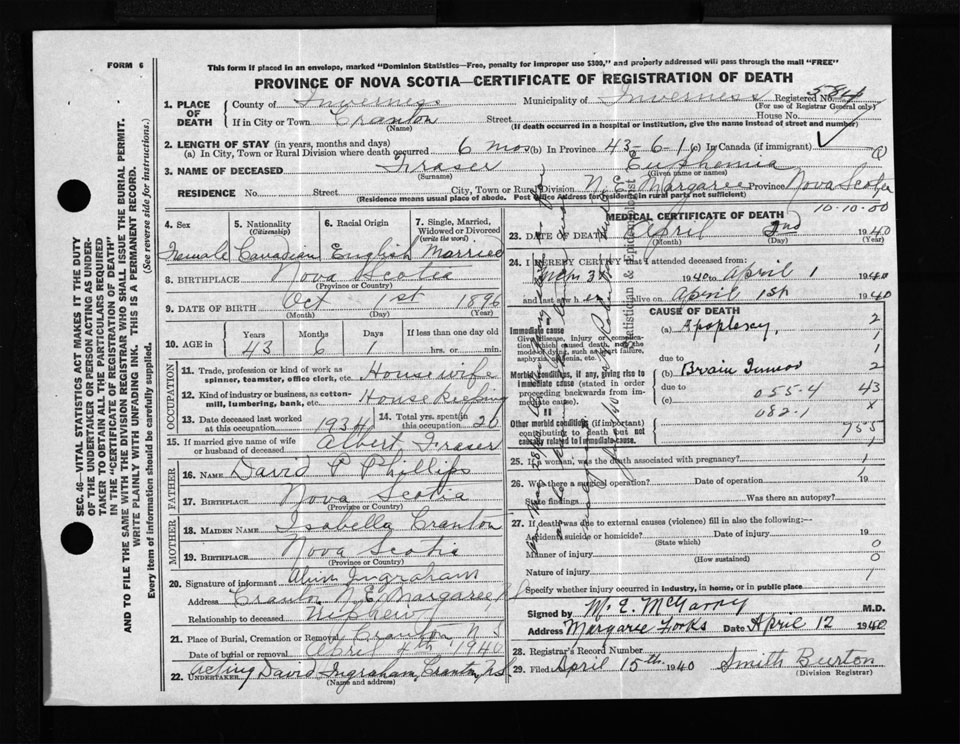 FORM 6
This form if placed in an envelope, marked "Dominion Statistics—Free, penalty for improper use $300," and properly addressed will pass through the mail "FREE"
PROVINCE OF NOVA SCOTIA—CERTIFICATE OF REGISTRATION OF DEATH
1. PLACE OF DEATH County of Inverness Municipality of Inverness Registered No. 584
(For use of Registrar General only)
If in City or Town Cranton Street House No.
(Name) (If death occurred in a hospital or institution, give the name instead of street and number)
2. LENGTH OF STAY (in years, months and days)
(a) In City, Town or Rural Division where death occurred 6 mos (b) In Province 43-6-1 (c) In Canada (if immigrant)
3. NAME OF DECEASED Fraser Euphemia
(Surname) (Given name or names)
RESIDENCE No. Street City, Town or Rural Division N. E. Margaree Province Nova Scotia
(Residence means usual place of abode. Post Office Address for residents in rural parts not sufficient)
10-10-00
4. Sex 5. Nationality (Citizenship) 6. Racial Origin 7. Single, Married, Widowed or Divorced (write the word)
Female Canadian English Married
8. BIRTHPLACE Nova Scotia
(Province or Country)
9. DATE OF BIRTH Oct 1st 1896
(Month) (Day) (Year)
10. AGE in Years Months Days If less than one day old
43 6 1 hrs. or min.
OCCUPATION
11. Trade, profession or kind of work as spinner, teamster, office clerk, etc. Housewife
12. Kind of industry or business, as cotton-mill, lumbering, bank, etc. House Keeping
13. Date deceased last worked at this occupation 1934
14. Total yrs. spent in this occupation 26
15. If married give name of wife or husband of deceased Albert Fraser
FATHER
16. NAME David P Phillips
17. BIRTHPLACE Nova Scotia
(Province or Country)
MOTHER
18. MAIDEN NAME Isabella Cranton
19. BIRTHPLACE Nova Scotia
(Province or Country)
20. Signature of informant Alvin Ingraham
Address Cranton N. E. Margaree
Relationship to deceased Nephew
21. Place of Burial, Cremation or Removal Cranton N S
Date of burial or removal April 4th 1940
22. UNDERTAKER acting David Ingraham, Cranton, N.S
(Name and address)
MEDICAL CERTIFICATE OF DEATH
23. DATE OF DEATH April 2nd 1940
(Month) (Day) (Year)
24. I HEREBY CERTIFY that I attended deceased from:
1940 to April 1 1940
and last saw h alive on April 1st 1940
CAUSE OF DEATH
Immediate cause (a) Apoplexy 2
Give disease, injury or complication which caused death, not the mode of dying, such as heart failure, asphyxia, asthenia, etc.
due to
Morbid conditions, if any, giving rise to immediate cause (stated in order proceeding backwards from immediate cause).
(b) Brain Tumor 2
due to 055-4 43
(c) 082.1 x
II
Other morbid conditions (if important) contributing to death but not causally related to immediate cause. 955
25. If a woman, was the death associated with pregnancy? 1
26. Was there a surgical operation? Date of operation 19
State findings Was there an autopsy?
27. If death was due to external causes (violence) fill in also the following:—
Accident, suicide or homicide? Date of injury 19
(State which)
Manner of injury 0
(How sustained)
Nature of injury 1
Specify whether injury occurred in industry, in home, or in public place
Signed by M.D.
Address Margaree Forks Date April 12 1940
28. Registrar's Record Number
29. Filed April 15th 1940 Smith Burton
(Division Registrar)
Statistician & Epidemiologist
SEC. 46—VITAL STATISTICS ACT MAKES IT THE DUTY
OF THE UNDERTAKER OR PERSON ACTING AS UNDER-
TAKER TO OBTAIN ALL THE PARTICULARS REQUIRED
IN THE "CERTIFICATE OF REGISTRATION OF DEATH"
AND TO FILE THE SAME WITH THE DIVISION REGISTRAR WHO SHALL ISSUE THE BURIAL PERMIT.
WRITE PLAINLY WITH UNFADING INK. THIS IS A PERMANENT RECORD.
Every item of information should be carefully supplied. (See reverse side for instructions.)